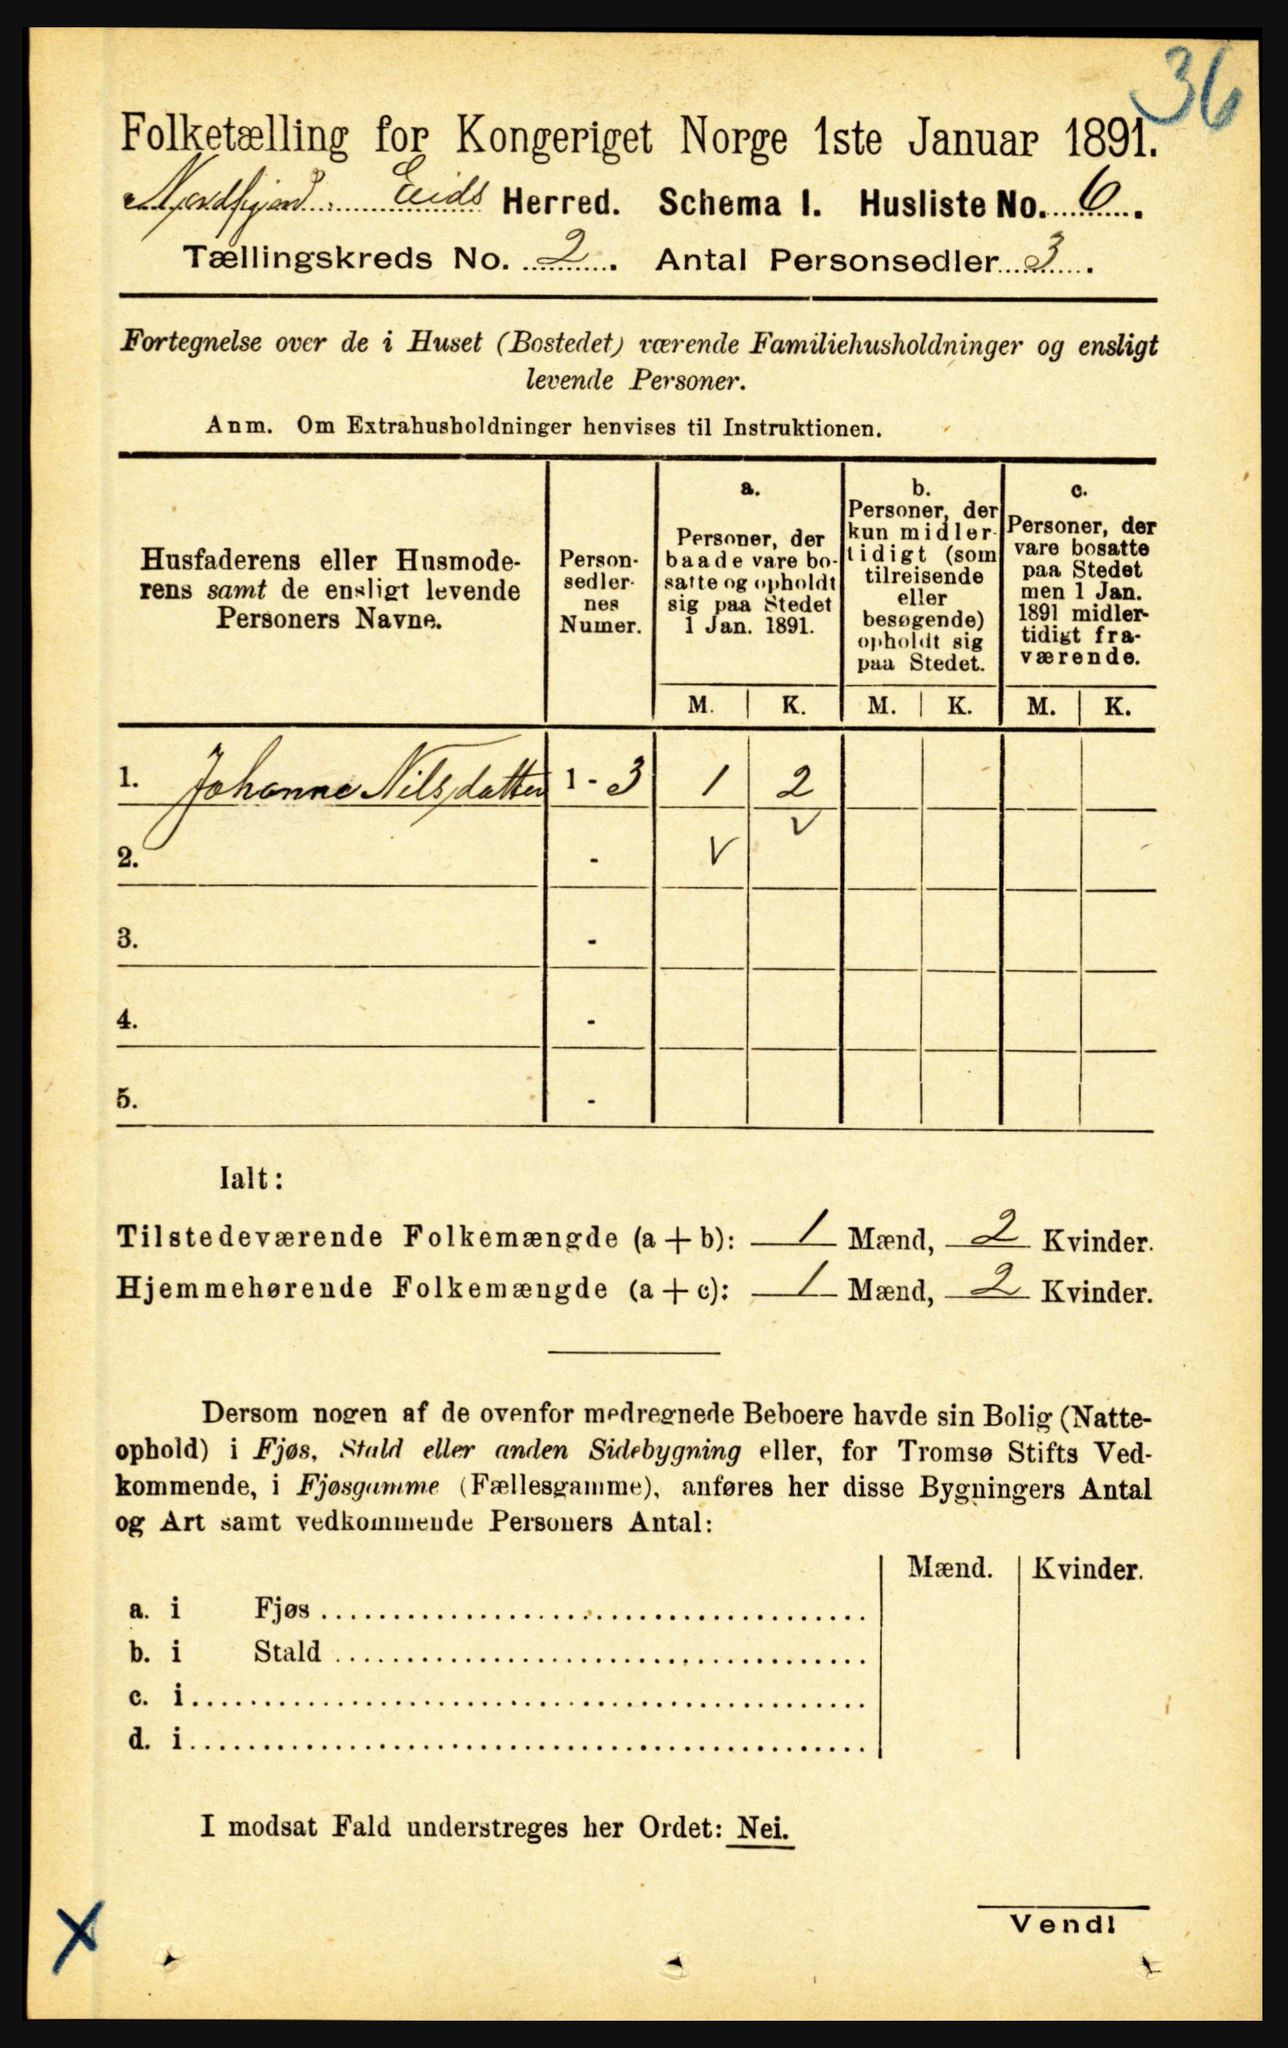 36
Folketælling for Kongeriget Norge 1ste Januar 1891.
Nordfjord Eids Herred. Schema I. Husliste No. 6.
Tællingskreds No. 2. Antal Personsedler 3.
Fortegnelse over de i Huset (Bostedet) værende Familiehusholdninger og ensligt
levende Personer.
Anm. Om Extrahusholdninger henvises til Instruktionen.
Husfaderens eller Husmode-
rens samt de ensligt levende
Personers Navne.
Person-
sedler-
nes
Numer.
a.
Personer, der
baade vare bo-
satte og opholdt
sig paa Stedet
1 Jan. 1891.
b.
Personer, der
kun midler-
tidigt (som
tilreisende
eller
besøgende)
opholdt sig
paa Stedet.
c.
Personer, der
vare bosatte
paa Stedet
men 1 Jan.
1891 midler-
tidigt fra-
værende.
M. K. M. K. M. K.
1. Johanne Nilsdatter 1 - 3 1 2
2. - V V
3. -
4. -
5. -
Ialt:
Tilstedeværende Folkemængde (a + b): 1 Mænd, 2 Kvinder.
Hjemmehørende Folkemængde (a + c): 1 Mænd, 2 Kvinder.
Dersom nogen af de ovenfor medregnede Beboere havde sin Bolig (Natte-
ophold) i Fjøs, Stald eller anden Sidebygning eller, for Tromsø Stifts Ved-
kommende, i Fjøsgamme (Fællesgamme), anføres her disse Bygningers Antal
og Art samt vedkommende Personers Antal:
Mænd. Kvinder.
a. i Fjøs
b. i Stald
c. i
d. i
I modsat Fald understreges her Ordet: Nei.
Vend!
X